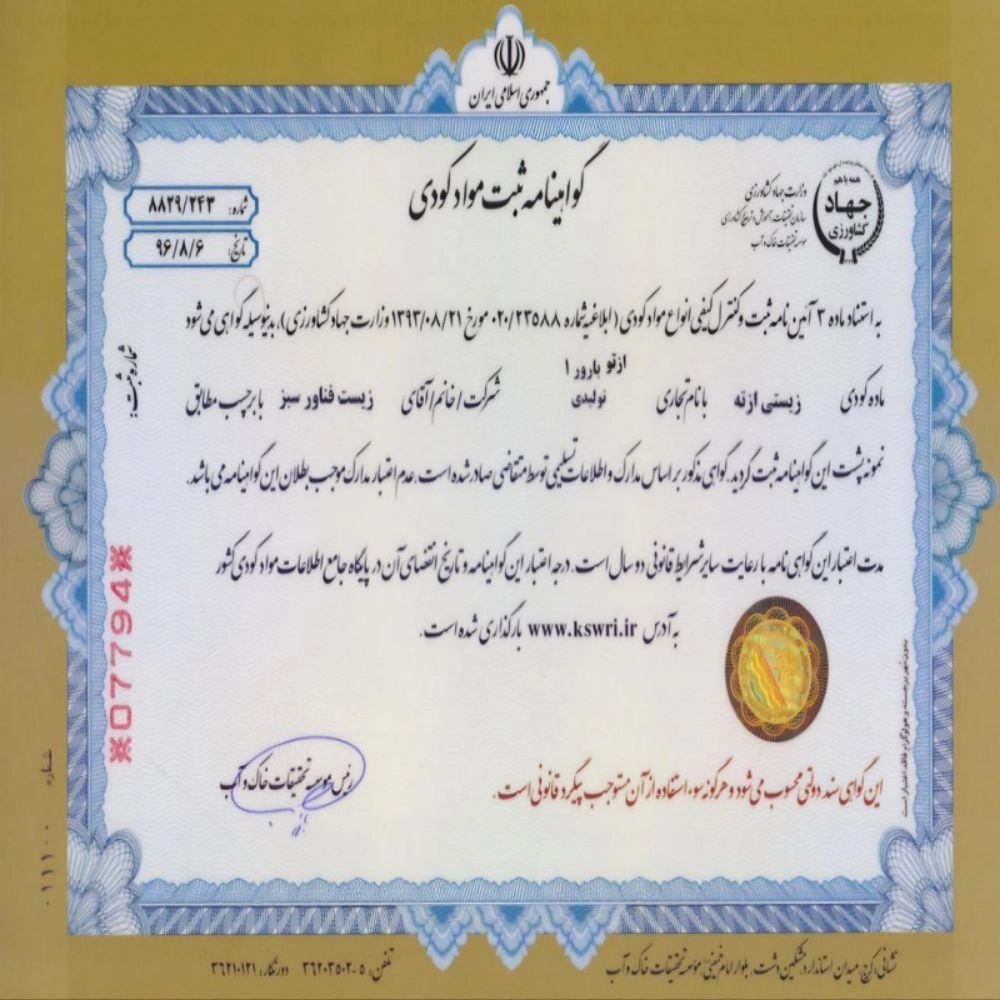 جمهوری اسلامی ایران
همه با هم
جهاد
کشاورزی
وزارت جهاد کشاورزی
سازمان تحقیقات، آموزش و ترویج کشاورزی
موسسه تحقیقات خاک و آب
گواهینامه ثبت مواد کودی
شماره: ۸۸۲۹/۲۴۳
تاریخ: ۹۶/۸/۶
به استناد ماده ۳ آئین نامه ثبت و کنترل کیفی انواع مواد کودی (ابلاغیه شماره ۰۲۰/۲۳۵۸۸ مورخ ۱۳۹۳/۰۸/۲۱ وزارت جهاد کشاورزی)، بدینوسیله گواهی می شود
ماده کودی زیستی ازته با نام تجاری ازتو بارور ۱ تولیدی شرکت/خانم/آقای زیست فناور سبز با برچسب مطابق
نمونه پشت این گواهینامه ثبت گردید. گواهی مذکور بر اساس مدارک و اطلاعات تسلیمی توسط متقاضی صادر شده است. عدم اعتبار مدارک موجب بطلان این گواهینامه می باشد.
مدت اعتبار این گواهی نامه با رعایت سایر شرایط قانونی دو سال است. درجه اعتبار این گواهینامه و تاریخ انقضای آن در پایگاه جامع اطلاعات مواد کودی کشور
به آدرس www.kswri.ir بارگذاری شده است.
شماره ثبت:
※07794※
رئیس موسسه تحقیقات خاک و آب
این گواهی سند دولتی محسوب می شود و هرگونه سوء استفاده از آن مستوجب پیگرد قانونی است.
بدون مهر برجسته و هولوگرام فاقد اعتبار است
شماره
۰۱۱۱۰۰
نشانی: کرج، میدان استاندارد، مشکین دشت، بلوار امام خمینی، موسسه تحقیقات خاک و آب
تلفن: ۵-۳۶۲۰۳۵۰۲ دورنگار: ۳۶۲۱۰۱۲۱